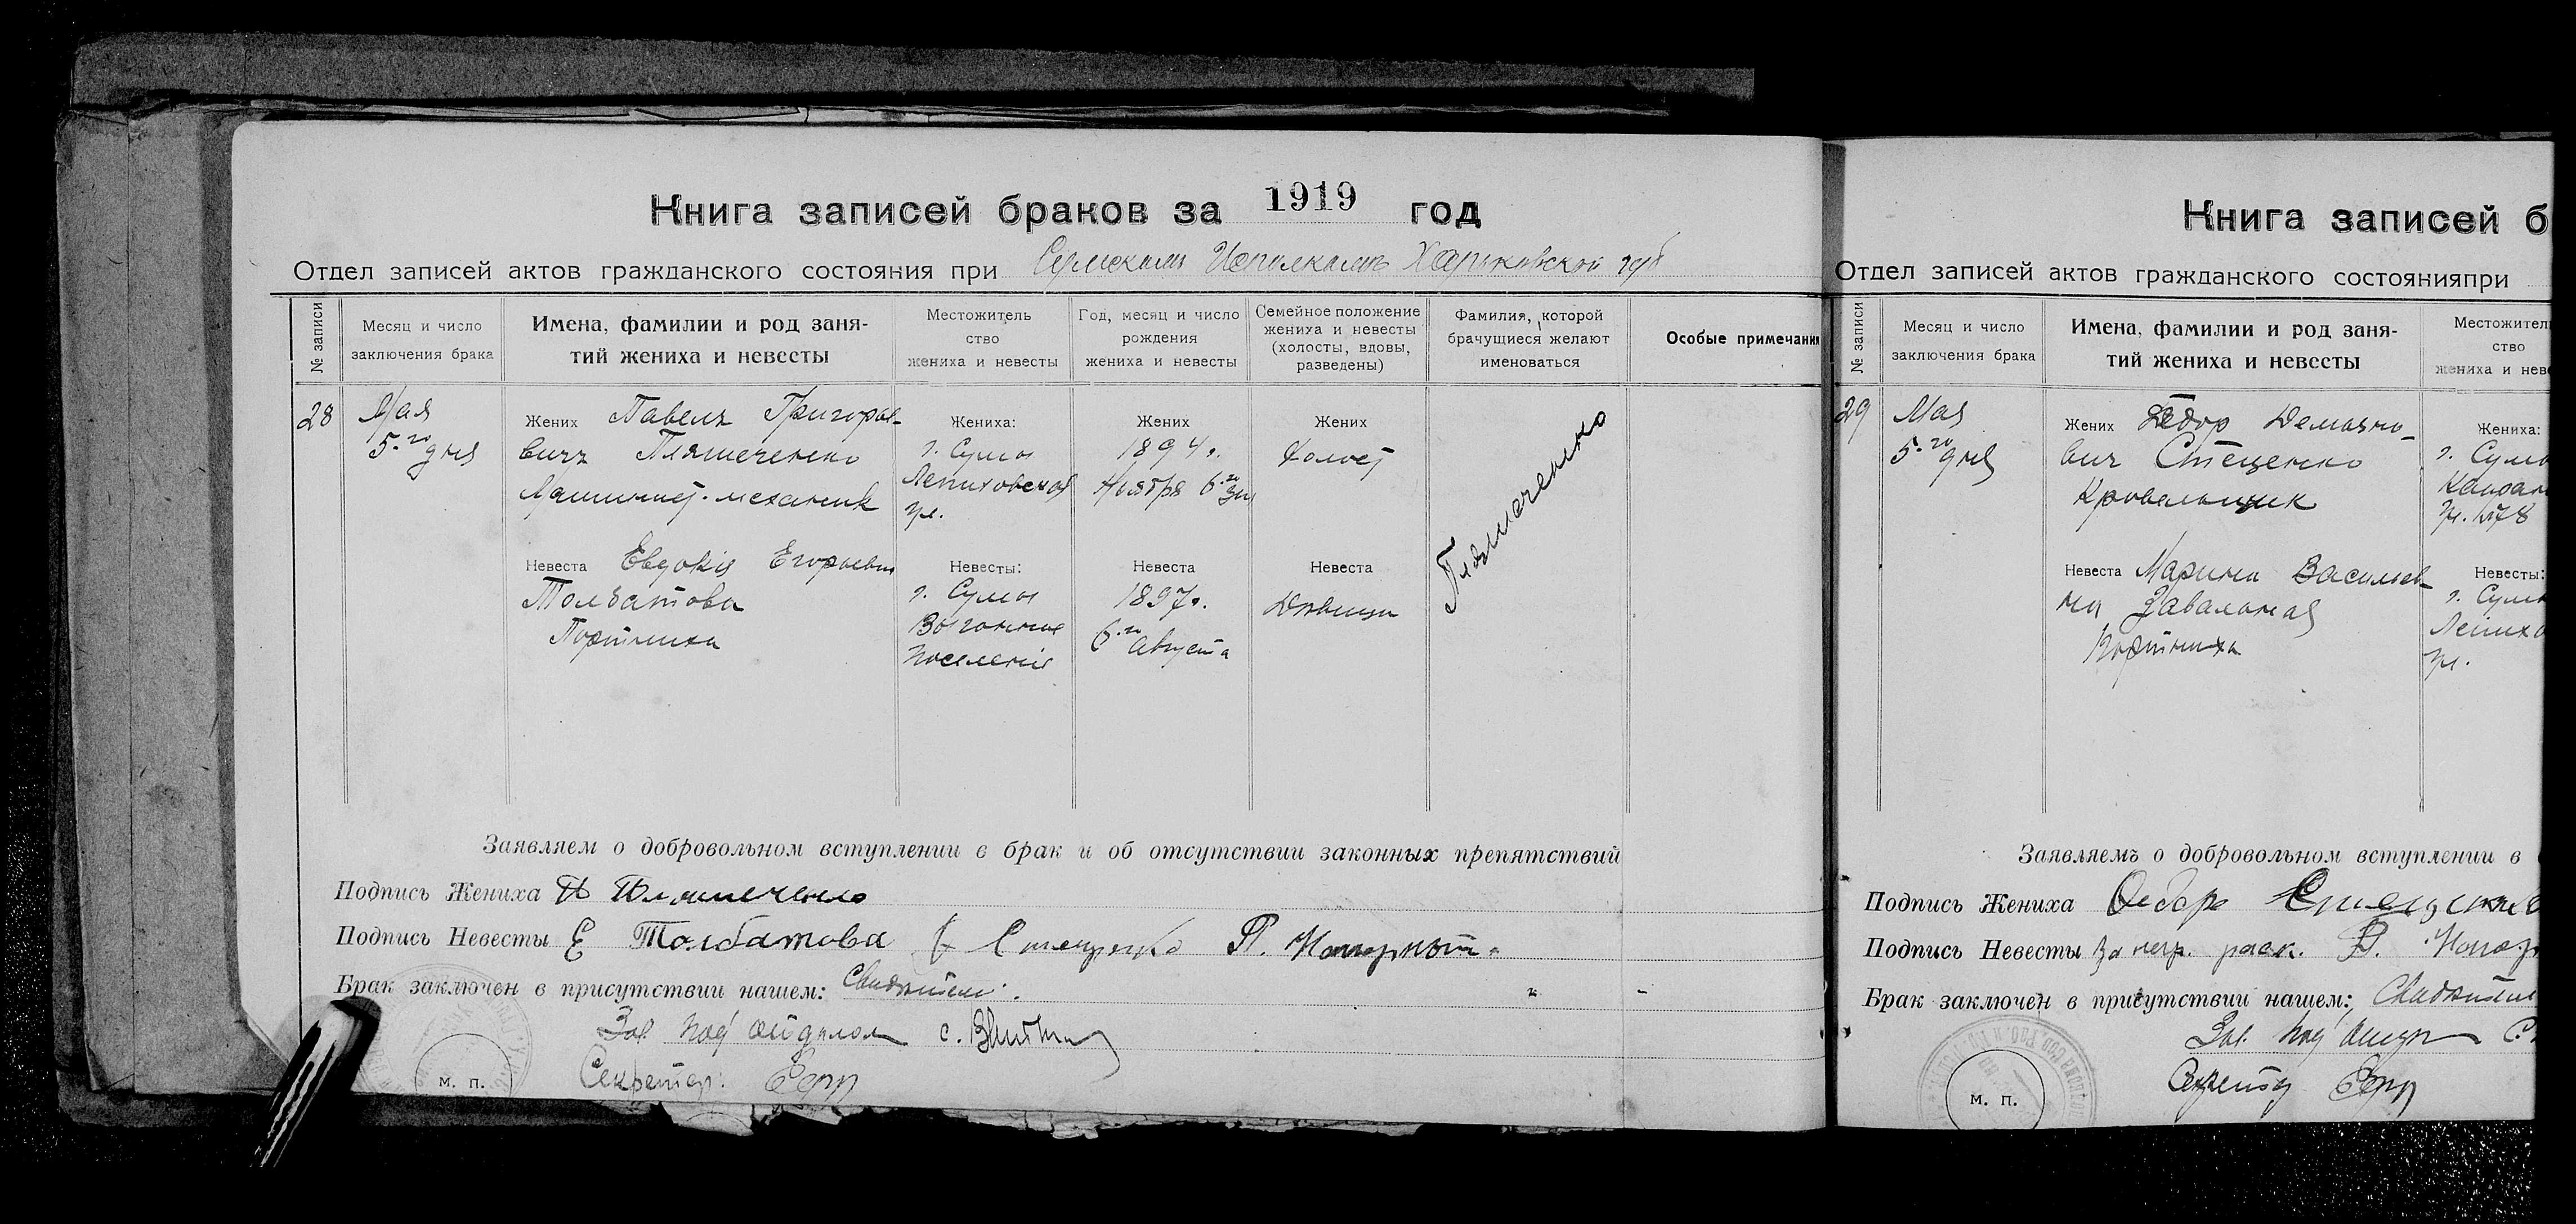 Книга записей браков за 1919 год
Отдел записей актов гражданского состояния при Сумском Исполкомъ Харьковской губ
№ записи
Месяц и число
заключения брака
Имена, фамилии и род заня-
тий жениха и невесты
Местожитель
ство
жениха и невесты
Год, месяц и число
рождения
жениха и невесты
Семейное положение
жениха и невесты
(холосты, вдовы,
разведены)
Фамилия, которой
брачущиеся желают
именоваться
Особые примечания
28
Мая
5-го дня
Жених Павелъ Григорье-
вичъ Пляшеченко
Машинист-механик
Невеста Евдокія Егорьевна
Толбатова
Портниха
Жениха:
г. Сумы
Лепиховская
ул.
Невесты:
г. Сумы
Выгонное
поселеніе
Жених
1894 г.
Ноября 6-го дня
Невеста
1897 г.
6-го Августа
Жених
Холост
Невеста
Дѣвица
Пляшеченко
Заявляем о добровольном вступлении в брак и об отсутствии законных препятствий
Подпись Жениха П Пляшеченко
Подпись Невесты Е Толбатова Стеценко П.
Брак заключен в присутствии нашем: Свидѣтели:
Зав. под отдѣлом с.
Секретар:
м. п.
Книга записей б
Отдел записей актов гражданского состоянияпри
№ записи
Месяц и число
заключения брака
Имена, фамилии и род заня-
тий жениха и невесты
Местожитель
ство
жениха и неве
29
Мая
5-го дня
Жених Федор Демьяно-
вич Стеценко
Кровельщик
Невеста Марина Васильев-
на Завальная
Портниха
Жениха:
г. Сумы
ул. №78
Невесты:
г. Сумы
Лепихо
ул.
Заявляемъ о добровольном вступлении в
Подпись Жениха Федоръ Стеценко
Подпись Невесты За негр. раск. П.
Брак заключен в присутствии нашем: Свидѣтели
Зав. под отдѣл С.
Секретар
м. п.